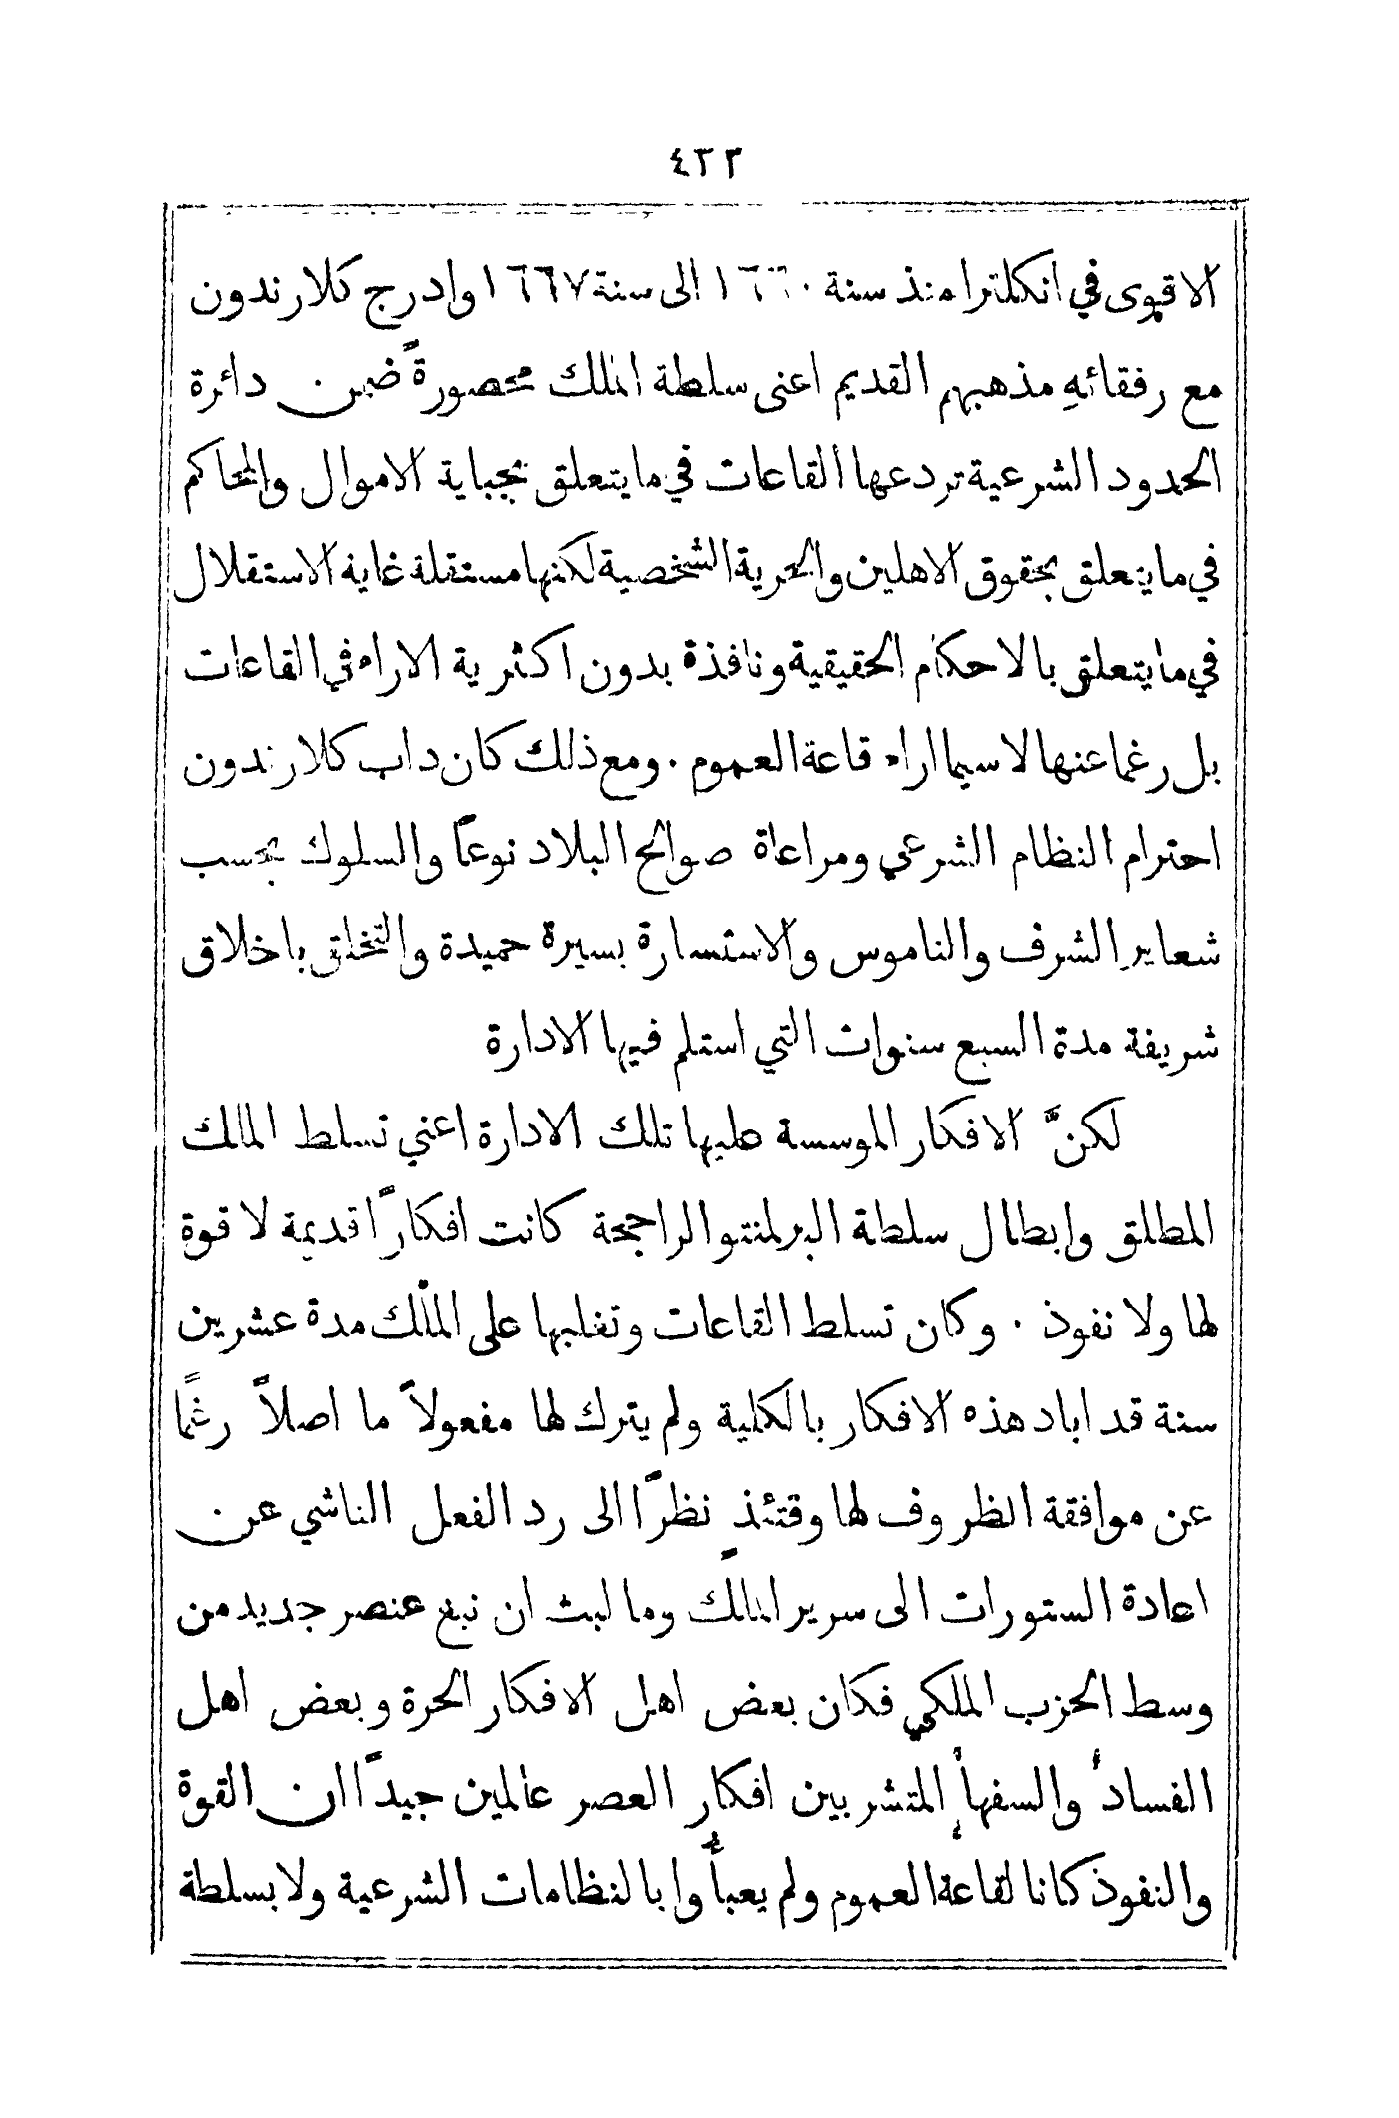 ٤٣٣
الاقوى في انكلترا منذ سنة ١٦٦٠ الى سنة ١٦٦٧ وادرج كلارندون
مع رفقائهِ مذهبهم القديم اعنى سلطة الملك محصورةً ضمن دائرة
الحدود الشرعية تردعها القاعات في ما يتعلق بجباية الاموال والمحاكم
في ما يتعلق بحقوق الاهلين والحرية الشخصية لكنها مستقلة غاية الاستقلال
في ما يتعلق بالاحكام الحقيقية ونافذة بدون اكثرية الاراء في القاعات
بل رغما عنها لا سيما اراء قاعة العموم . ومع ذلك كان داب كلارندون
احترام النظام الشرعي ومراعاة صوالح البلاد نوعاً والسلوك بحسب
شعاير الشرف والناموس والاستسارة بسيرة حميدة والتخلق باخلاق
شريفة مدة السبع سنوات التي استلم فيها الادارة
لكنَّ الافكار الموسسة عليها تلك الادارة اعني تسلط المالك
المطلق وابطال سلطة البرلمنتو الراجحة كانت افكارًا قديمة لا قوة
لها ولا نفوذ . وكان تسلط القاعات وتغلبها على الملك مدة عشرين
سنة قد اباد هذه الافكار بالكلية ولم يترك لها مفعولاً ما اصلاً رغمًا
عن موافقة الظروف لها وقتئذٍ نظرًا الى رد الفعل الناشي عن
اعادة الستورات الى سرير المالك وما لبث ان نبع عنصر جديد من
وسط الحزب الملكي فكان بعض اهل الافكار الحرة وبعض اهل
الفساد والسفهاء المتشربين افكار العصر عالمين جيدًا ان القوة
والنفوذ كانا لقاعة العموم ولم يعبأوا بالنظامات الشرعية ولا بسلطة